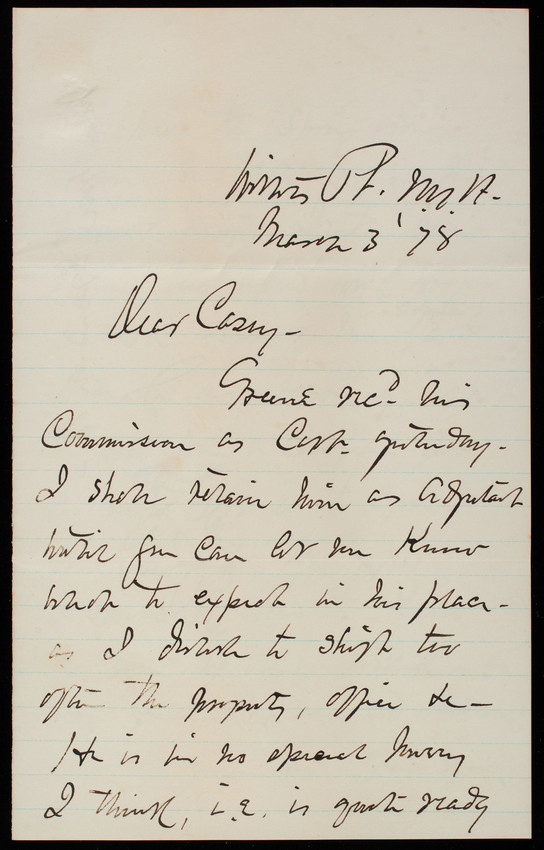 Willets Pt. N.Y. H.
March 3 '78
Dear Casey -
Greene recd. his
Commission as Capt. yesterday -
I shall retain him as Adjutant
until you can let me Know
what to expect in his place -
as I dislike to shift too
often the property, office &c -
He is in no special hurry
I think, i.e. is quite ready